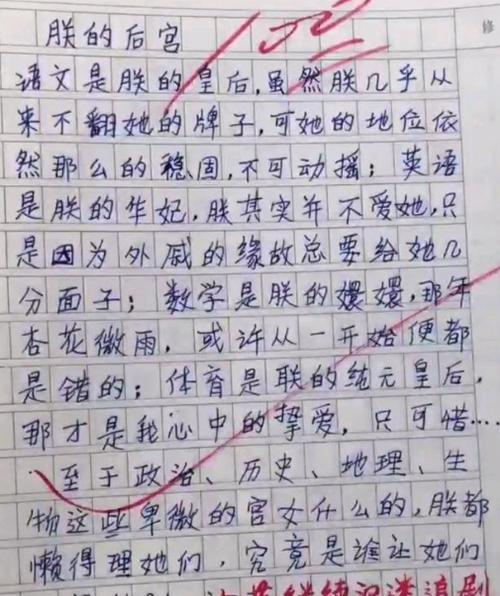 朕的后宫
修
语文是朕的皇后,虽然朕几乎从
来不翻她的牌子,可她的地位依
然那么的稳固,不可动摇;英语
是朕的华妃,朕其实并不爱她,只
是因为外戚的缘故总要给她几
分面子;数学是朕的嬛嬛,那年
杏花微雨,或许从一开始便都
是错的;体育是联的纯元皇后,
那才是我心中的挚爱,只可惜……
至于政治、历史、地理、生
物这些卑微的宫女什么的,朕都
懒得理她们,究竟是谁让她们